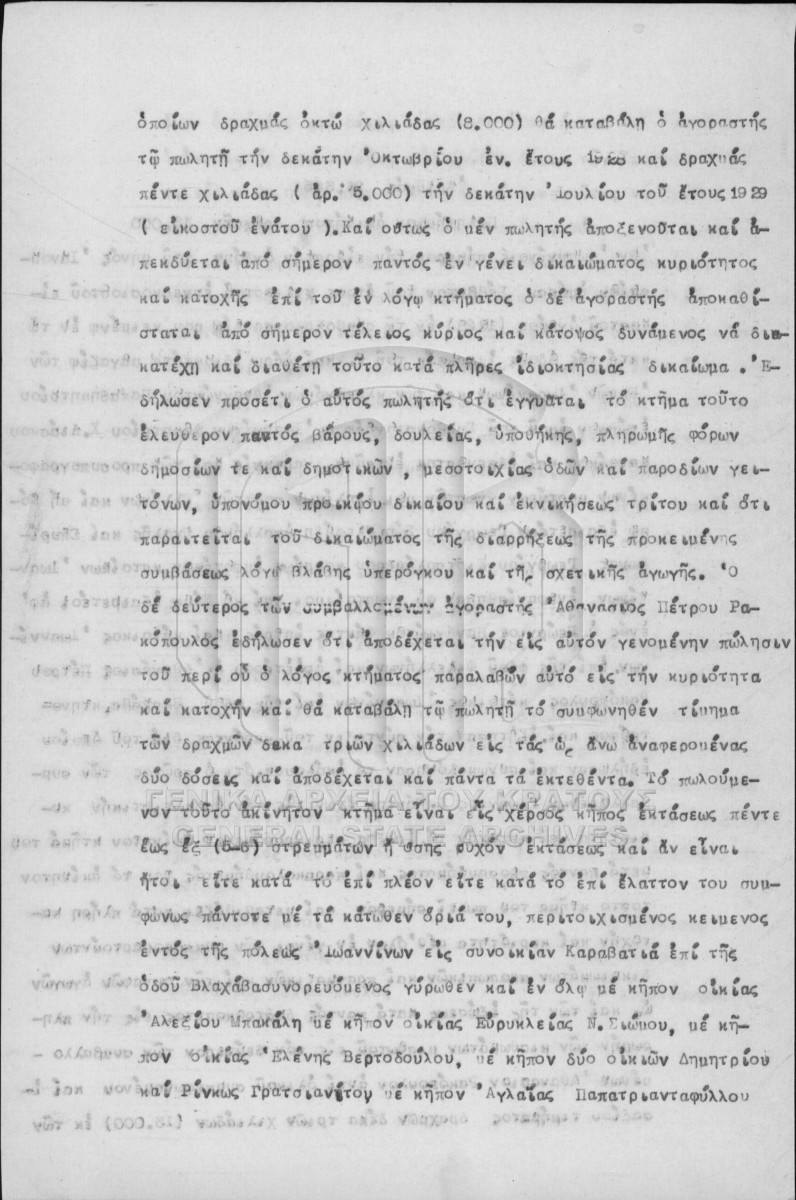 ὁποίων δραχμάς ὀκτώ χιλιάδας (8.000) θά καταβάλῃ ὁ ἀγοραστής
τῷ πωλητῇ τήν δεκάτην Ὀκτωβρίου ἐν. ἔτους 1928 καί δραχμάς
πέντε χιλιάδας ( ἀρ. 5.000) τήν δεκάτην Ἰουλίου τοῦ ἔτους 1929
( εἰκοστοῦ ἐνάτου ).Καί οὕτως ὁ μέν πωλητής ἀποξενοῦται καί ἀ-
πεκδύεται ἀπό σήμερον παντός ἐν γένει δικαιώματος κυριότητος
καί κατοχῆς ἐπί τοῦ ἐν λόγῳ κτήματος ὁ δέ ἀγοραστής ἀποκαθί-
σταται ἀπό σήμερον τέλειος κύριος καί κάτοχος δυνάμενος νά δια-
κατέχῃ καί διαθέτῃ τοῦτο κατά πλῆρες ἰδιοκτησίας δικαίωμα . Ἐ-
δήλωσεν προσέτι ὁ αὐτός πωλητής ὅτι ἐγγυᾶται τό κτῆμα τοῦτο
ἐλεύθερον παντός βάρους, δουλείας, ὑποθήκης, πληρωμῆς φόρων
δημοσίων τε καί δημοτικῶν , μεσοτοιχίας ὁδῶν καί παροδίων γει-
τόνων, ὑπονόμου προικῴου δικαίου καί ἐκνικήσεως τρίτου καί ὅτι
παραιτεῖται τοῦ δικαιώματος τῆς διαρρήξεως τῆς προκειμένης
συμβάσεως λόγῳ βλάβης ὑπερόγκου καί τῆς σχετικῆς ἀγωγῆς. Ὁ
δέ δεύτερος τῶν συμβαλλομένων ἀγοραστής Ἀθανάσιος Πέτρου Ρα-
κόπουλος ἐδήλωσεν ὅτι ἀποδέχεται τήν εἰς αὐτόν γενομένην πώλησιν
τοῦ περί οὗ ὁ λόγος κτήματος παραλαβών αὐτό εἰς τήν κυριότητα
καί κατοχήν καί θά καταβάλῃ τῷ πωλητῇ τό συμφωνηθέν τίμημα
τῶν δραχμῶν δεκα τριῶν χιλιάδων εἰς τάς ὡς ἄνω ἀναφερομένας
δύο δόσεις καί ἀποδέχεται καί πάντα τά ἐκτεθέντα. Τό πωλούμε-
νον τοῦτο ἀκίνητον κτῆμα εἶναι εἷς χέρσος κῆπος ἐκτάσεως πέντε
ΓΕΝΙΚΑ ΑΡΧΕΙΑ ΤΟΥ ΚΡΑΤΟΥΣ
GENERAL STATE ARCHIVES
ἕως ἕξ (5-6) στρεμμάτων ἤ ὅσης τυχόν ἐκτάσεως καί ἄν εἶναι
ἤτοι εἴτε κατά τό ἐπί πλέον εἴτε κατά τό ἐπί ἔλαττον του συμ-
φώνως πάντοτε μέ τά κάτωθεν ὅριά του, περιτοιχισμένος κείμενος
ἐντός τῆς πόλεως Ἰωαννίνων εἰς συνοικίαν Καραβατιά ἐπί τῆς
ὁδοῦ Βλαχάβασυνορευόμενος γύρωθεν καί ἐν ὅλῳ μέ κῆπον οἰκίας
Ἀλεξίου Μπακάλη μέ κῆπον οἰκίας Εὐρυκλείας Ν.Σιώμου, μέ κῆ-
πον οἰκίας Ἑλένης Βερτοδούλου, μέ κῆπον δύο οἰκιῶν Δημητρίου
καί Ρίνκως Γρατσιανίτου μέ κῆπον Ἀγλαΐας Παπατριανταφύλλου